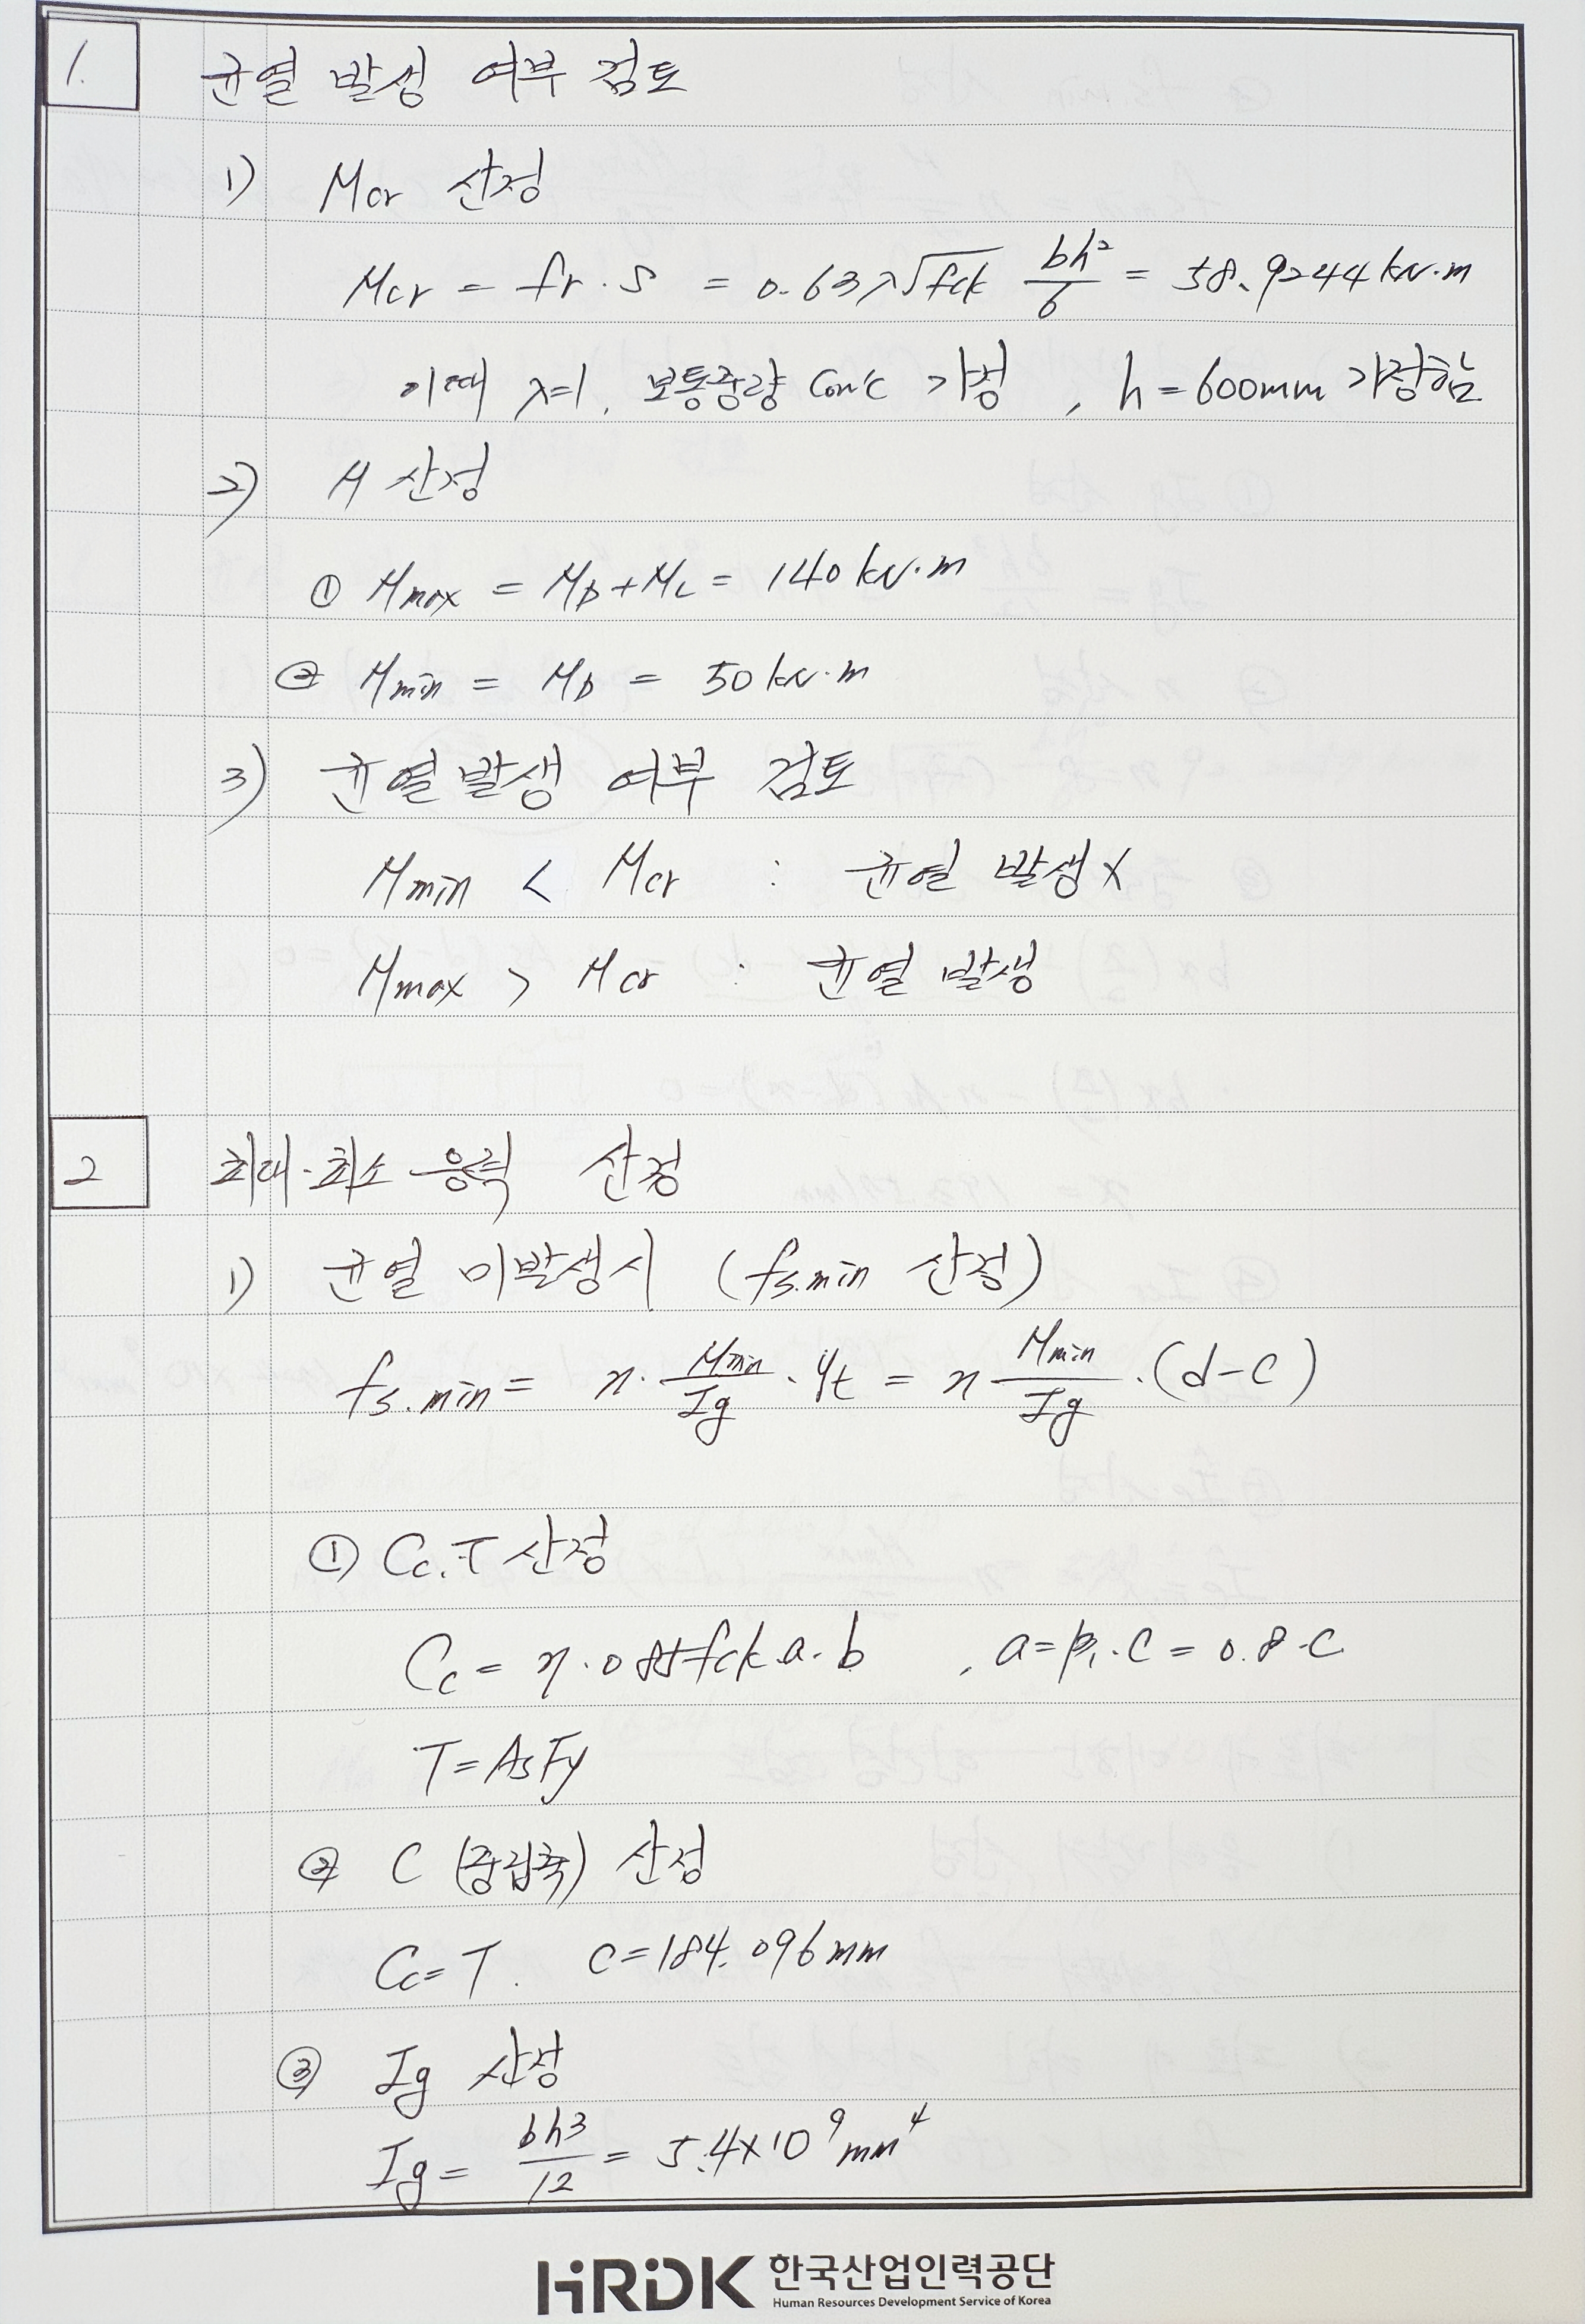 1. 균열 발생 여부 검토
1) Mcr 산정
Mcr = fr · S = 0.63λ√fck bh²/6 = 58.9244 kN·m
이때 λ=1, 보통중량 Con'c 가정, h=600mm 가정함
2) M 산정
① Mmax = MD + ML = 140 kN·m
② Mmin = MD = 50 kN·m
3) 균열발생 여부 검토
Mmin < Mcr : 균열 발생 X
Mmax > Mcr : 균열 발생
2 최대·최소 응력 산정
1) 균열 미발생시 (fs.min 산정)
fs.min = n · Mmin/Ig · yt = n Mmin/Ig · (d-c)
① Cc, T 산정
Cc = η · 0.85fck · a · b , a = β₁ · c = 0.8 · c
T = AsFy
② C (중립축) 산정
Cc = T. c = 184.096mm
③ Ig 산정
Ig = bh³/12 = 5.4×10⁹ mm⁴
HRDK 한국산업인력공단
Human Resources Development Service of Korea